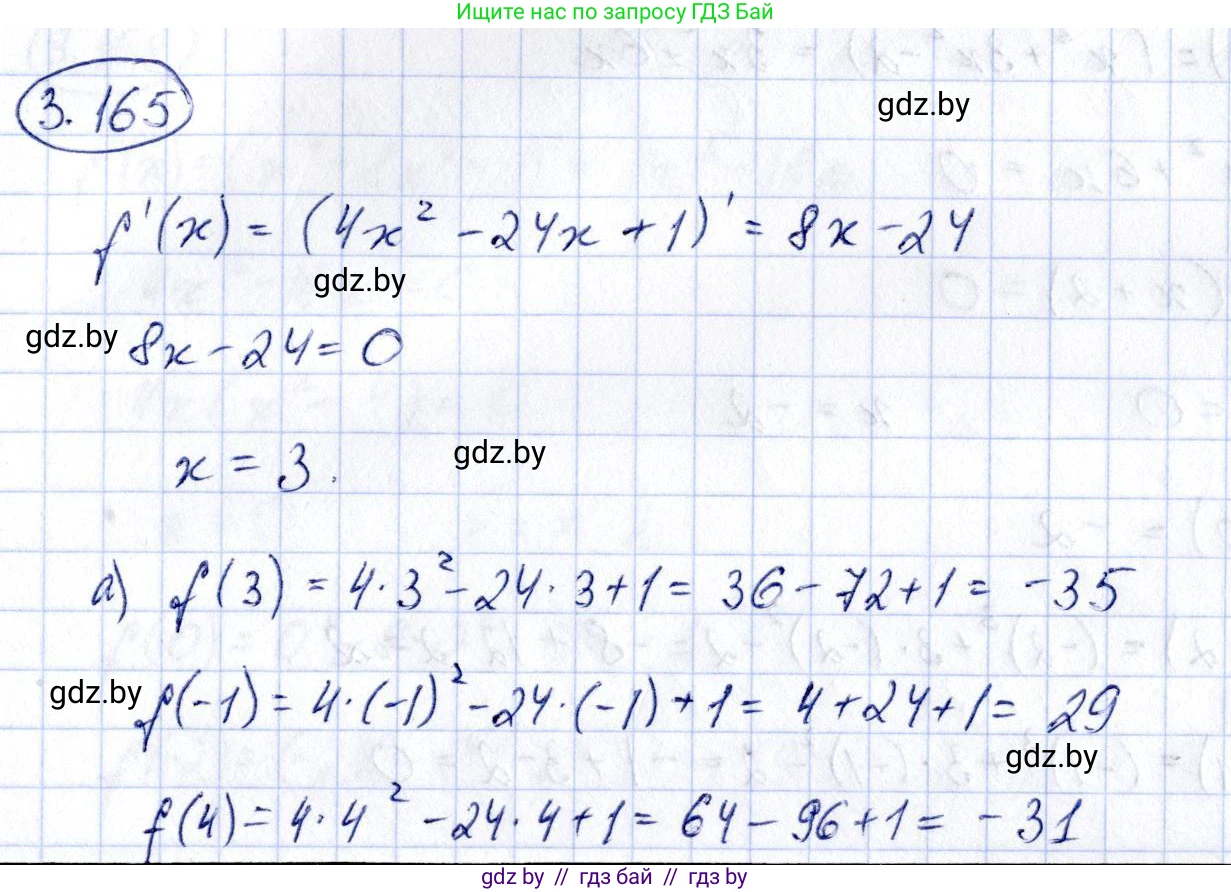 Ищите нас по запросу ГДЗ Бай
3.165
gdz.by
f'(x) = (4x² - 24x + 1)' = 8x - 24
gdz.by
gdz.by
8x - 24 = 0
x = 3.
gdz.by
а) f(3) = 4·3² - 24·3 + 1 = 36 - 72 + 1 = -35
gdz.by
f(-1) = 4·(-1)² - 24·(-1) + 1 = 4 + 24 + 1 = 29
gdz.by
f(4) = 4·4² - 24·4 + 1 = 64 - 96 + 1 = -31
gdz.by // гдз бай // gdz.by